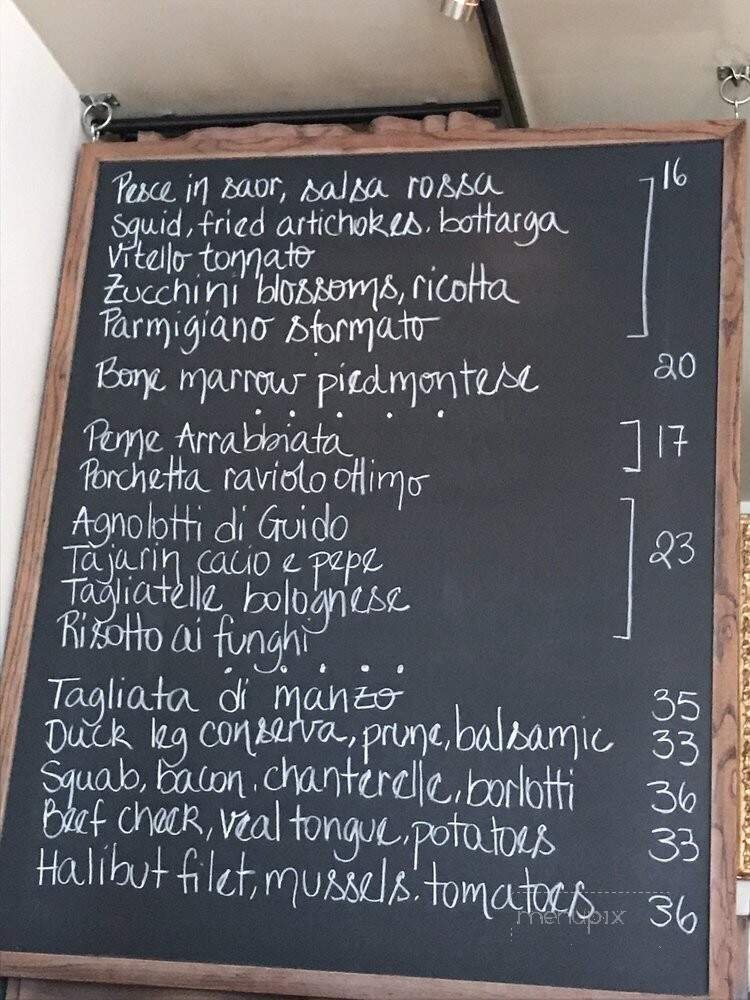 Pesce in saor, salsa rossa 16
Squid, fried artichokes, bottarga
Vitello tonnato
Zucchini blossoms, ricotta
Parmigiano sformato
Bone marrow piedmontese 20
Penne Arrabbiata 17
Porchetta raviolo ottimo
Agnolotti di Guido
Tajarin cacio e pepe 23
Tagliatelle bolognese
Risotto ai funghi
Tagliata di manzo 35
Duck leg conserva, prune, balsamic 33
Squab, bacon, chanterelle, borlotti 36
Beef cheek, veal tongue, potatoes 33
Halibut filet, mussels, tomatoes 36
menupix